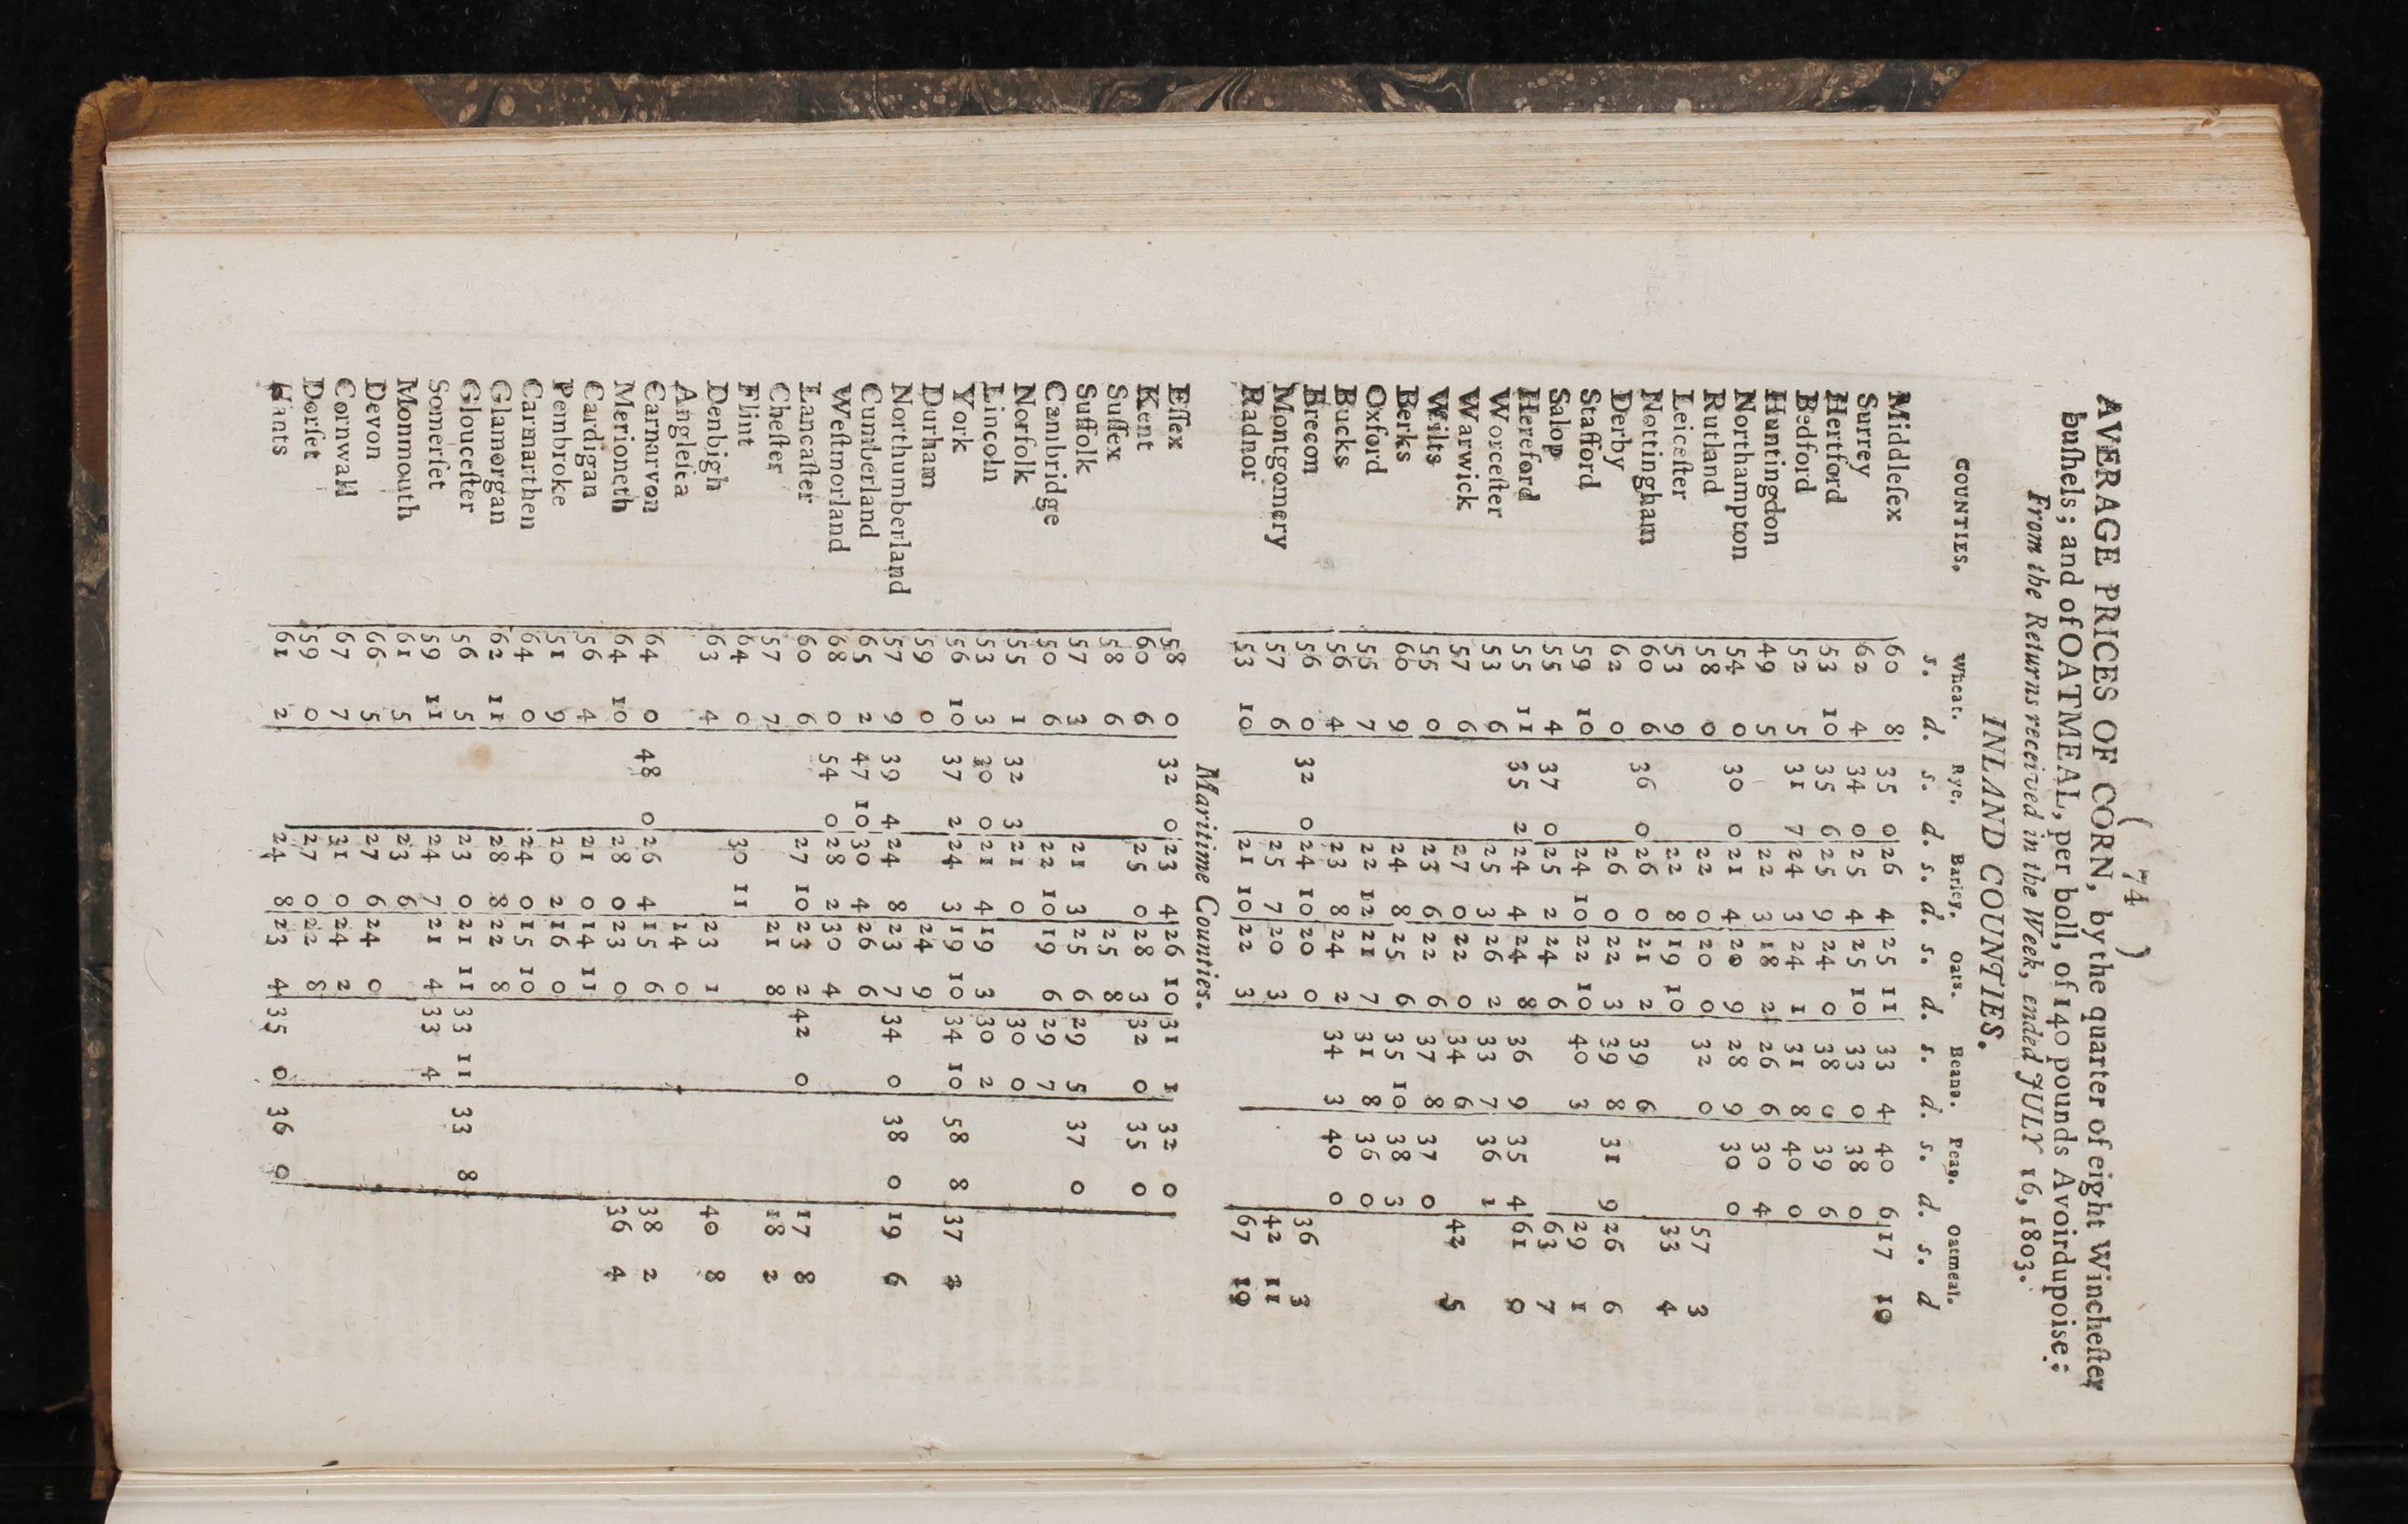 ( 74 )
AVERAGE PRICES OF CORN, by the quarter of eight Wincheſter
buſhels; and of OATMEAL, per boll, of 140 pounds Avoirdupoise;
From the Returns received in the Week, ended JULY 16, 1803.
INLAND COUNTIES.
COUNTIES. Wheat. Rye. Barley. Oats. Beans. Peas. Oatmeal.
s. d. s. d. s. d. s. d. s. d. s. d. s. d
Middleſex 60 8 35 0 26 4 25 11 33 4 40 6 17 10
Surrey 62 4 34 0 25 4 25 10 33 0 38 0
Hertford 53 10 35 6 25 9 24 0 38 0 39 6
Bedford 52 5 31 7 24 3 24 1 31 8 40 0
Huntingdon 49 5 22 3 18 2 26 6 30 4
Northampton 54 0 30 0 21 4 20 9 28 9 30 0
Rutland 58 0 22 0 20 0 32 0 57 3
Leiceſter 53 9 22 8 19 10 33 4
Nottingham 60 6 36 0 26 0 21 2 39 6
Derby 62 0 26 0 22 3 39 8 31 9 26 6
Stafford 59 10 24 10 22 10 40 3 29 1
Salop 55 4 37 0 25 2 24 6 63 7
Hereford 55 11 35 2 24 4 24 8 36 9 35 4 61 0
Worceſter 53 6 25 3 26 2 33 7 36 1
Warwick 57 6 27 0 22 0 34 6 42 5
Wilts 55 0 23 6 22 6 37 8 37 0
Berks 60 9 24 8 25 6 35 10 38 3
Oxford 55 7 22 12 21 7 31 8 36 0
Bucks 56 4 23 8 24 2 34 3 40 0
Brecon 56 0 32 0 24 10 20 0 36 3
Montgomery 57 6 25 7 20 3 42 11
Radnor 53 10 21 10 22 3 67 10
Maritime Counties.
Eſſex 58 0 32 0 23 4 26 10 31 1 32 0
Kent 60 6 25 0 28 3 32 0 35 0
Suſſex 58 6 25 8
Suffolk 57 3 21 3 25 6 29 5 37 0
Cambridge 50 6 22 10 19 6 29 7
Norfolk 55 1 32 3 21 0 30 0
Lincoln 53 3 30 0 21 4 19 3 30 2
York 56 10 37 2 24 3 19 10 34 10 58 8 37
Durham 59 0 24 9
Northumberland 57 9 39 4 24 8 23 7 34 0 38 0 19 6
Cumberland 65 2 47 10 30 4 26 6
Weſtmorland 68 0 54 0 28 2 30 4
Lancaſter 60 6 27 10 23 2 42 0 17 8
Cheſter 57 7 21 8 18 2
Flint 64 0 30 11
Denbigh 63 4 23 1 40 8
Angleſea 14 0
Carnarvon 64 0 48 0 26 4 15 6 38 2
Merioneth 64 10 28 0 23 0 36 4
Cardigan 56 4 21 0 14 11
Pembroke 51 9 20 2 16 0
Carmarthen 64 0 24 0 15 10
Glamorgan 62 11 28 8 22 8
Glouceſter 56 5 23 0 21 11 33 11 33 8
Somerſet 59 11 24 7 21 4 33 4
Monmouth 61 5 23 6
Devon 66 5 27 6 24 0
Cornwall 67 7 31 0 24 2
Dorſet 59 0 27 0 22 8
Hants 61 2 24 8 23 4 35 0 36 0